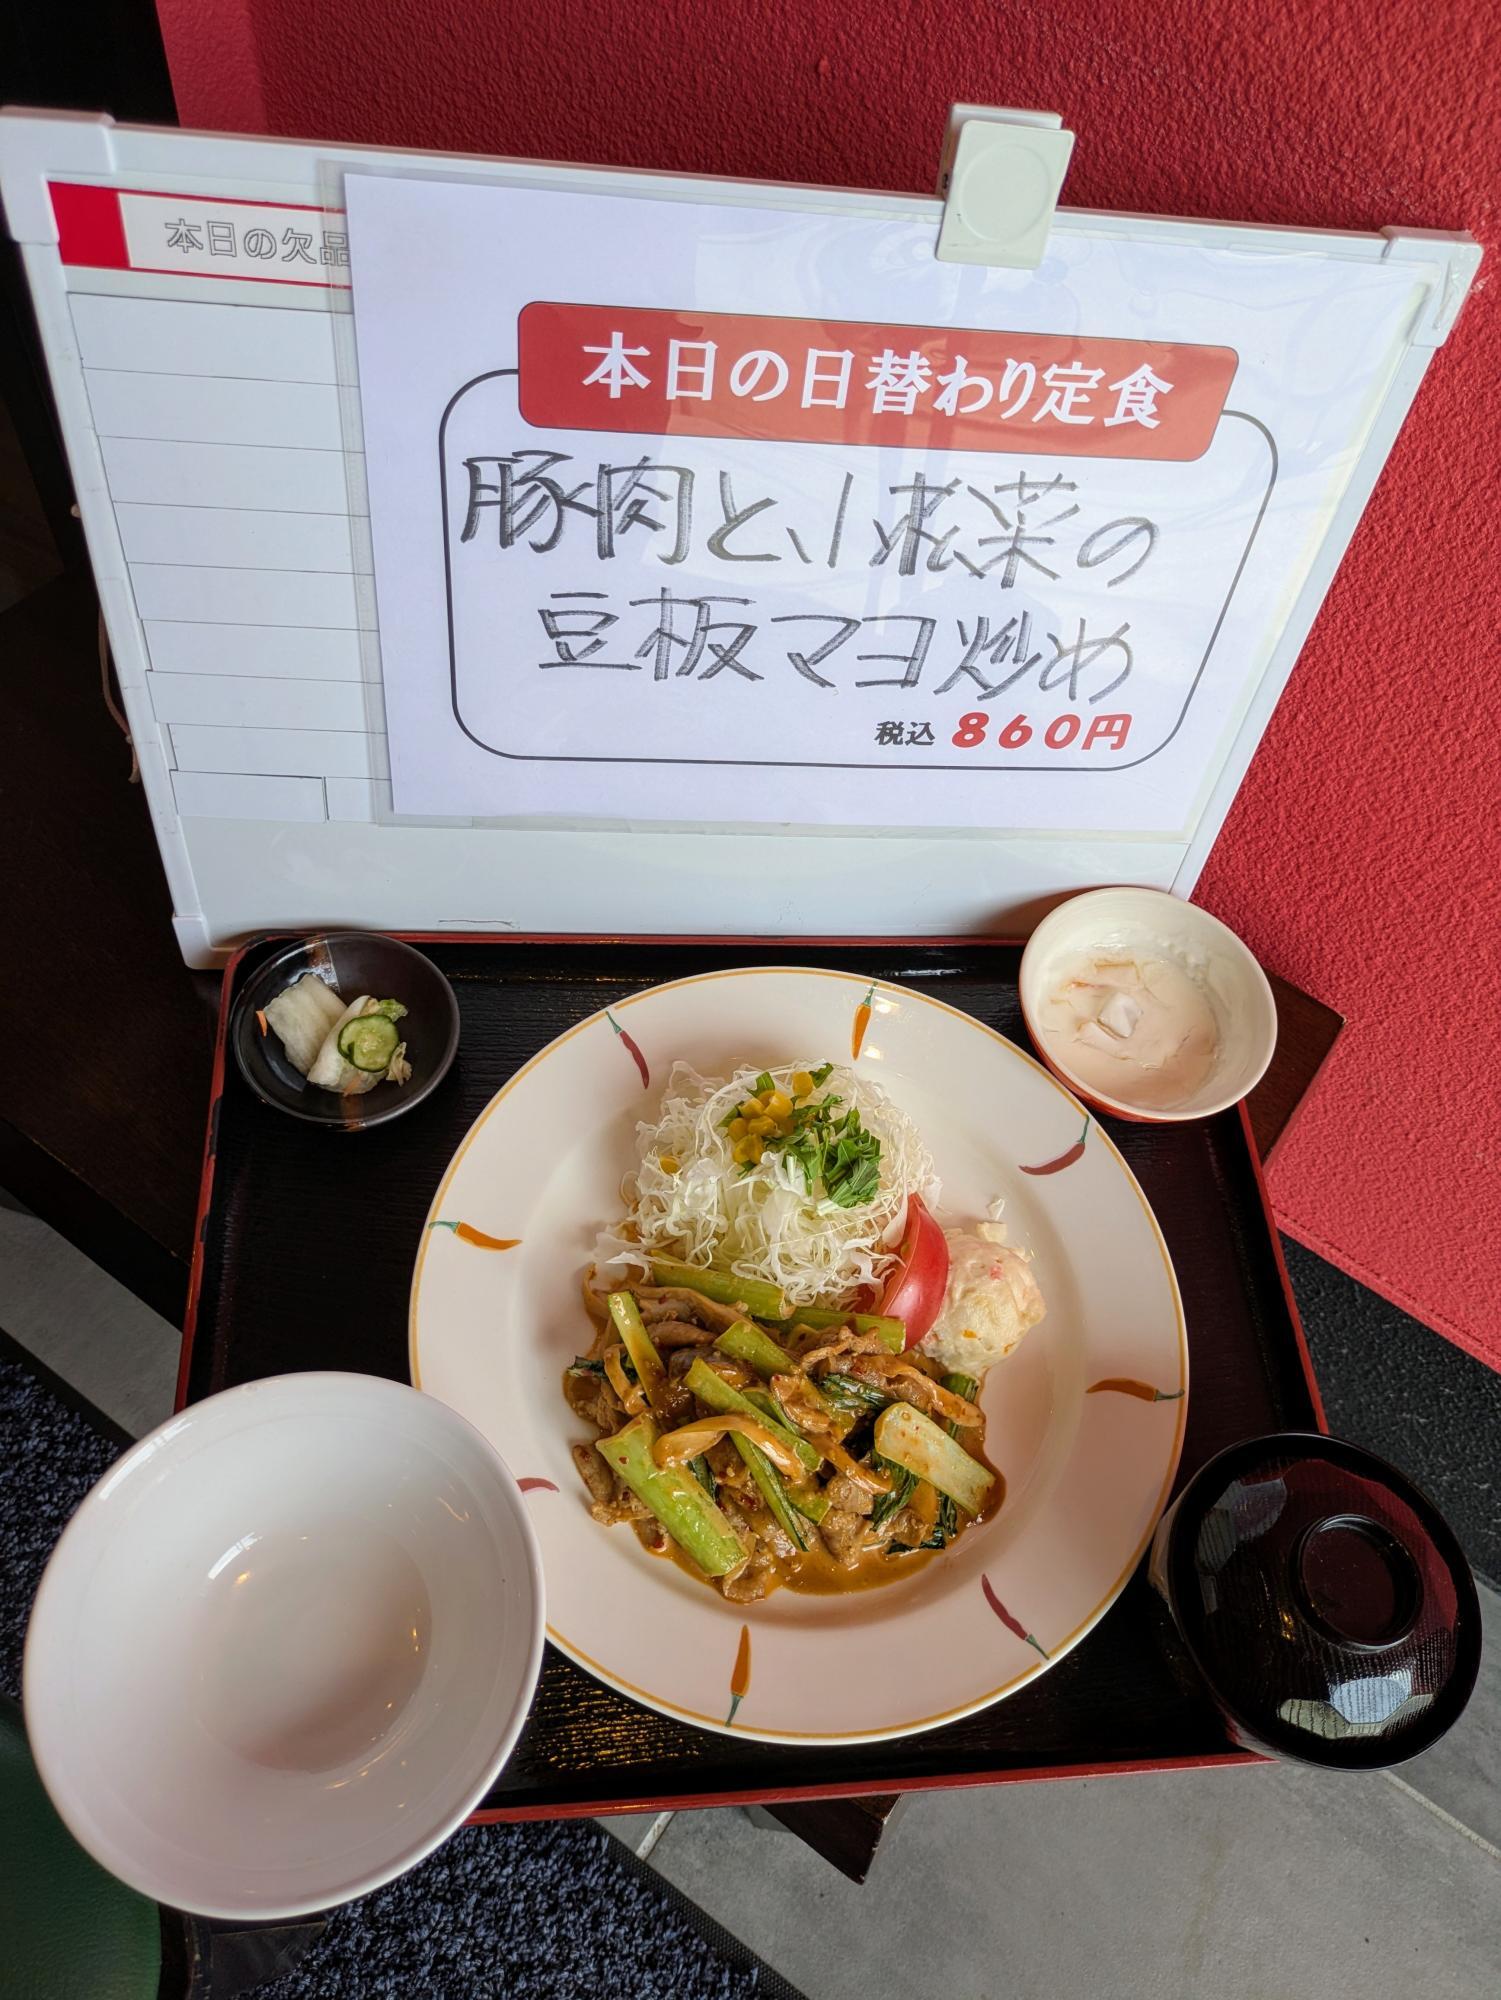 本日の欠品
本日の日替わり定食
豚肉と小松菜の
豆板マヨ炒め
税込 860円